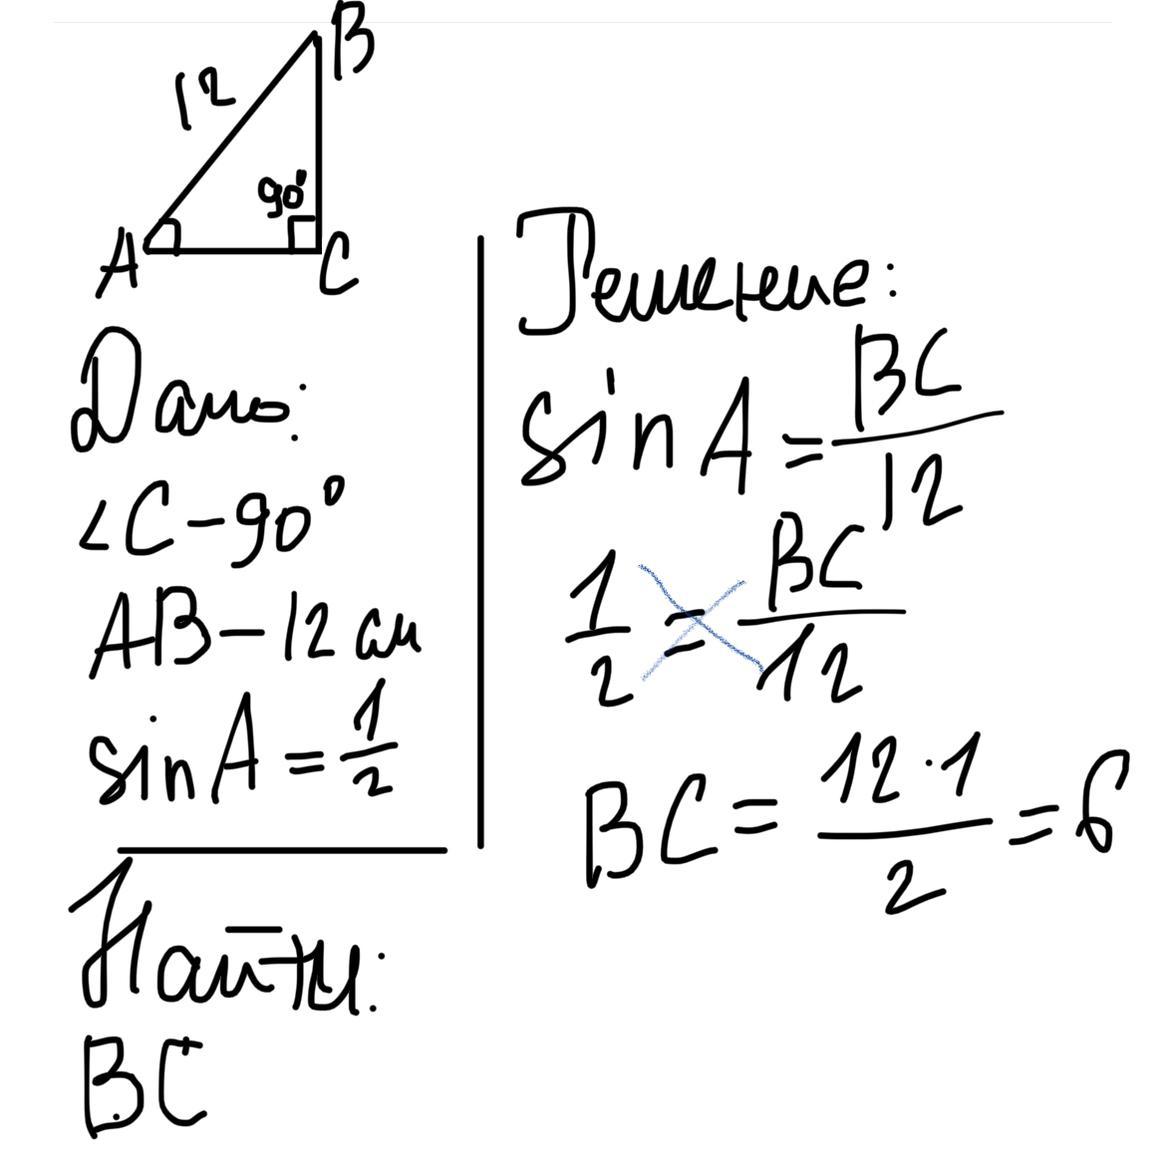 B
12
90°
A C
Дано:
∠C-90°
AB-12 см
sin A = 1/2
Найти:
BC
Решение:
sin A = BC/12
1/2 = BC/12
BC = 12·1/2 = 6